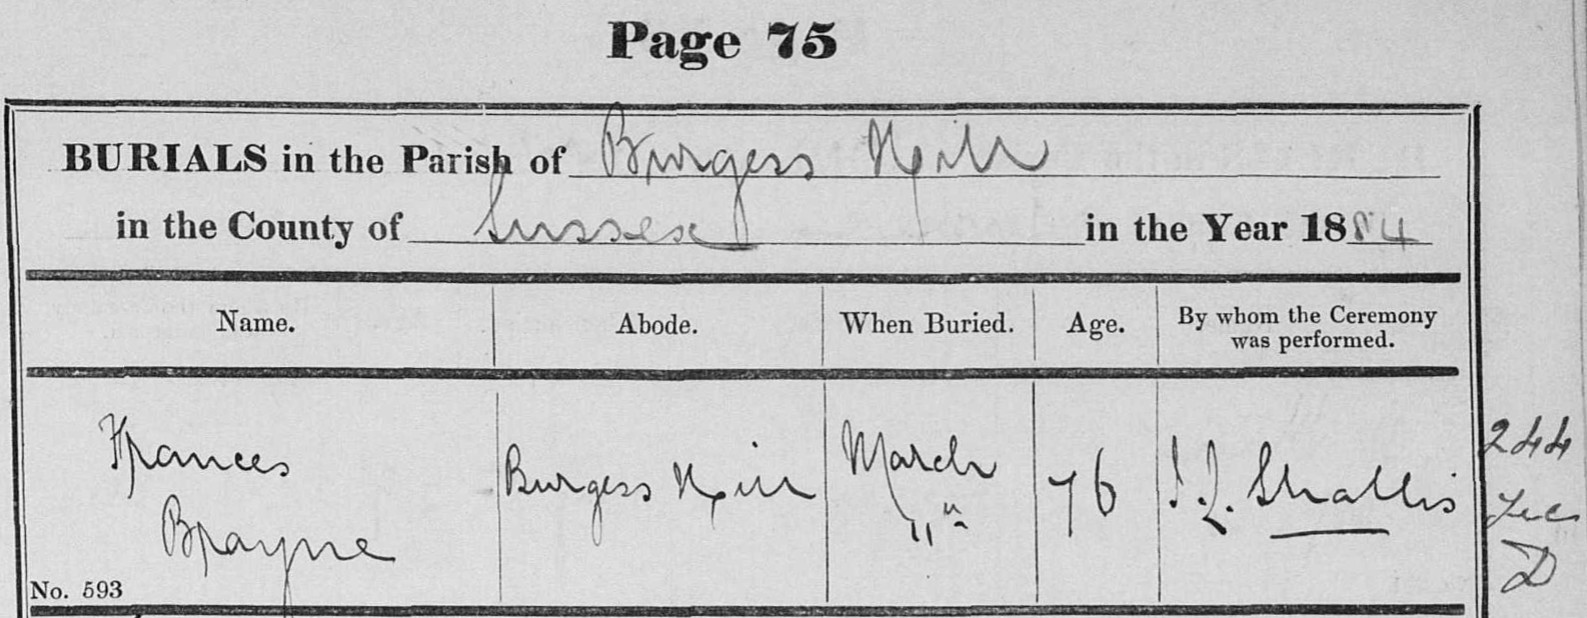 Page 75
BURIALS in the Parish of Burgess Hill
in the County of Sussex in the Year 1884
Name. Abode. When Buried. Age. By whom the Ceremony was performed.
Frances Brayne Burgess Hill March 11th 76 Shallis
244
D
No. 593